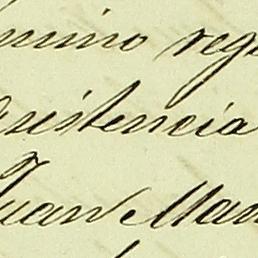 mino reg
existencia
Juan Man